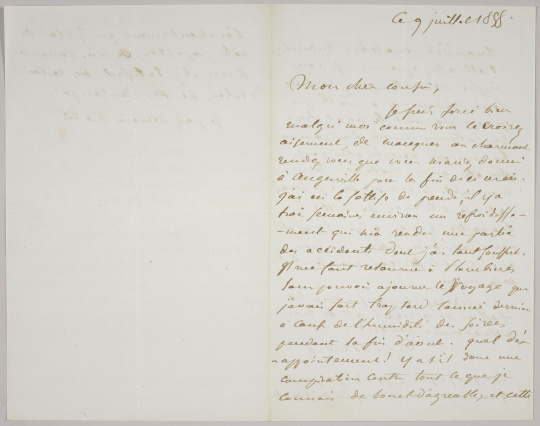 Ce 9 juillet 1858.
Mon cher cousin,
Je suis forcé bien
malgré moi comme vous le croirez
aisement, de manquer au charmant
rendez vous que vous m'aviez donné
à Augerville pour la fin de ce mois.
J'ai eu la sottise de prendre, il y a
trois semaines environ un refroidisse-
-ment qui m'a rendu une partie
des accidents dont j'ai tant souffert.
Il me faut retourner à Plombières
sans pouvoir ajourner le voyage que
j'avais fait trop tard l'année dernière
à cause de l'humidité des soirées
pendant la fin d'aout. quel dés-
-appointement! y a t'il donc une
conspiration contre tout ce que je
connais de bon et d'agréable, et cette